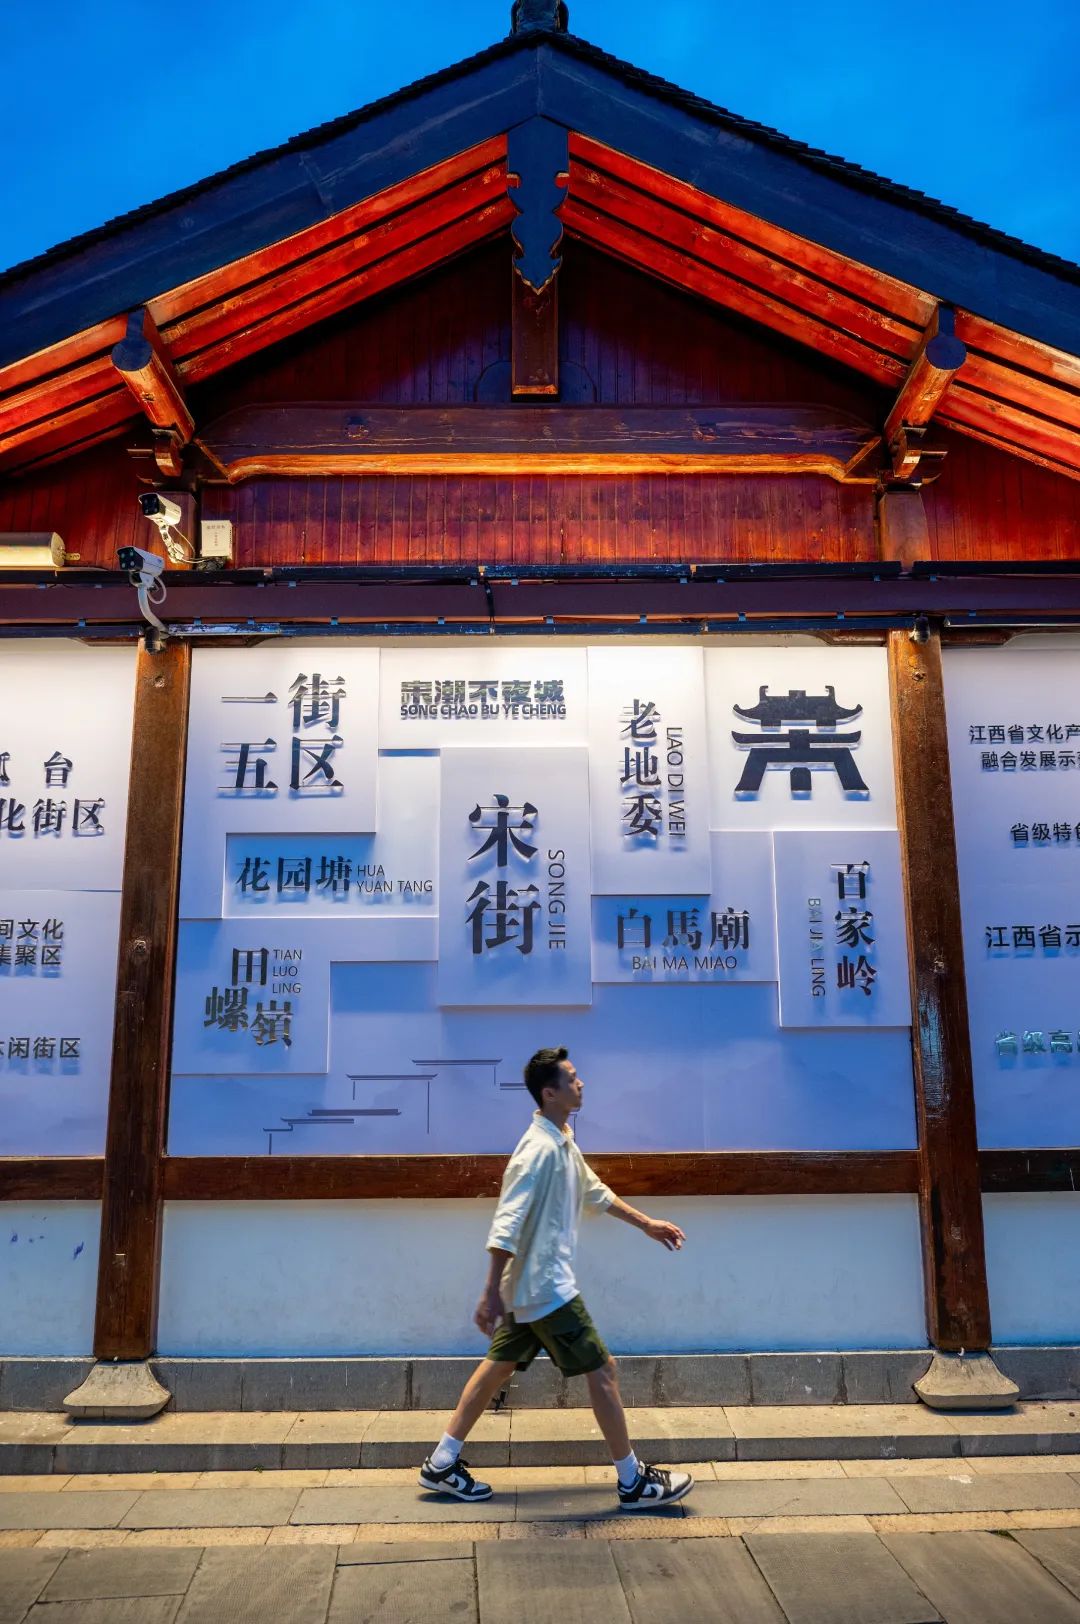 台
化街区
间文化
集聚区
休闲街区
一街
五区
宋潮不夜城
SONG CHAO BU YE CHENG
花园塘
HUA
YUAN TANG
田
螺嶺
TIAN
LUO
LING
宋街
SONG JIE
老地委
LAO DI WEI
白馬廟
BAI MA MIAO
百家岭
BAI JIA LING
江西省文化产
融合发展示
省级特
江西省示
省级高